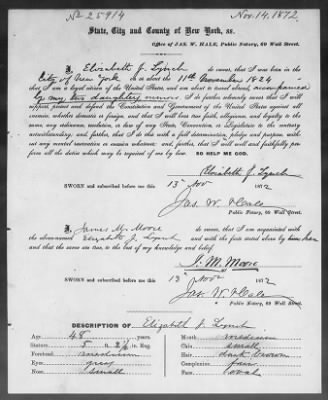 No 25914 Nov. 14, 1872.
State, City and County of New York, ss.
Office of JAS. W. HALE, Public Notary, 69 Wall Street.
I, Elizabeth J. Lynch do swear, that I was born in the
City of New York on or about the 11th November 1824
that I am a legal citizen of the United States, and am about to travel abroad, accompanied
by my two daughters minors And I do further solemnly swear that I will
support, protect and defend the Constitution and Government of the United States against all
enemies, whether domestic or foreign, and that I will bear true faith, allegiance, and loyalty to the same,
any ordinance, resolution, or law of any State, Convention, or Legislature to the contrary
notwithstanding; and, further, that I do this with a full determination, pledge and purpose, without
any mental reservation or evasion whatsoever; and, further, that I will well and faithfully perform
all the duties which may be required of me by law. SO HELP ME GOD.
Elizabeth J. Lynch
SWORN and subscribed before me this 13 Nov 1872
Jas. W. Hale
Public Notary, 69 Wall Street.
I, James M. Moore do swear, that I am acquainted with
the above-named Elizabeth J. Lynch and with the facts stated above by
and that the same are true, to the best of my knowledge and belief.
J. M. Moore
SWORN and subscribed before me this
13 Nov 1872
Jas. W. Hale
Public Notary, 69 Wall Street.
DESCRIPTION OF Elizabeth J. Lynch
Age 48 years. Mouth medium
Stature 5 ft. in. Eng. Chin small
Forehead medium Hair dark brown
Eyes grey Complexion fair
Nose small Face oval